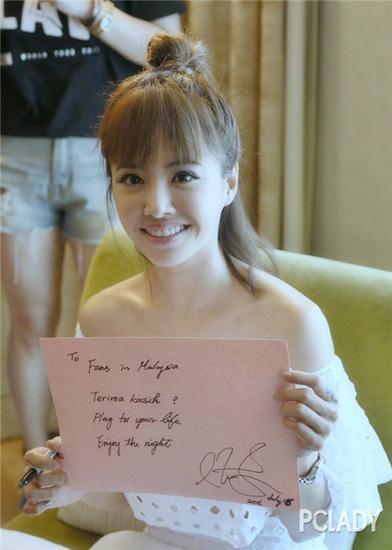 WORLD TOUR
To Fans in Malaysia
Terima kasih ?
Play for your life
Enjoy the night
July
PCLADY